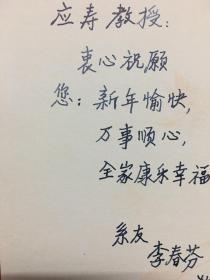 应寿教授：
衷心祝愿
您：新年愉快，
万事顺心，
全家康乐幸福
系友
李春芬